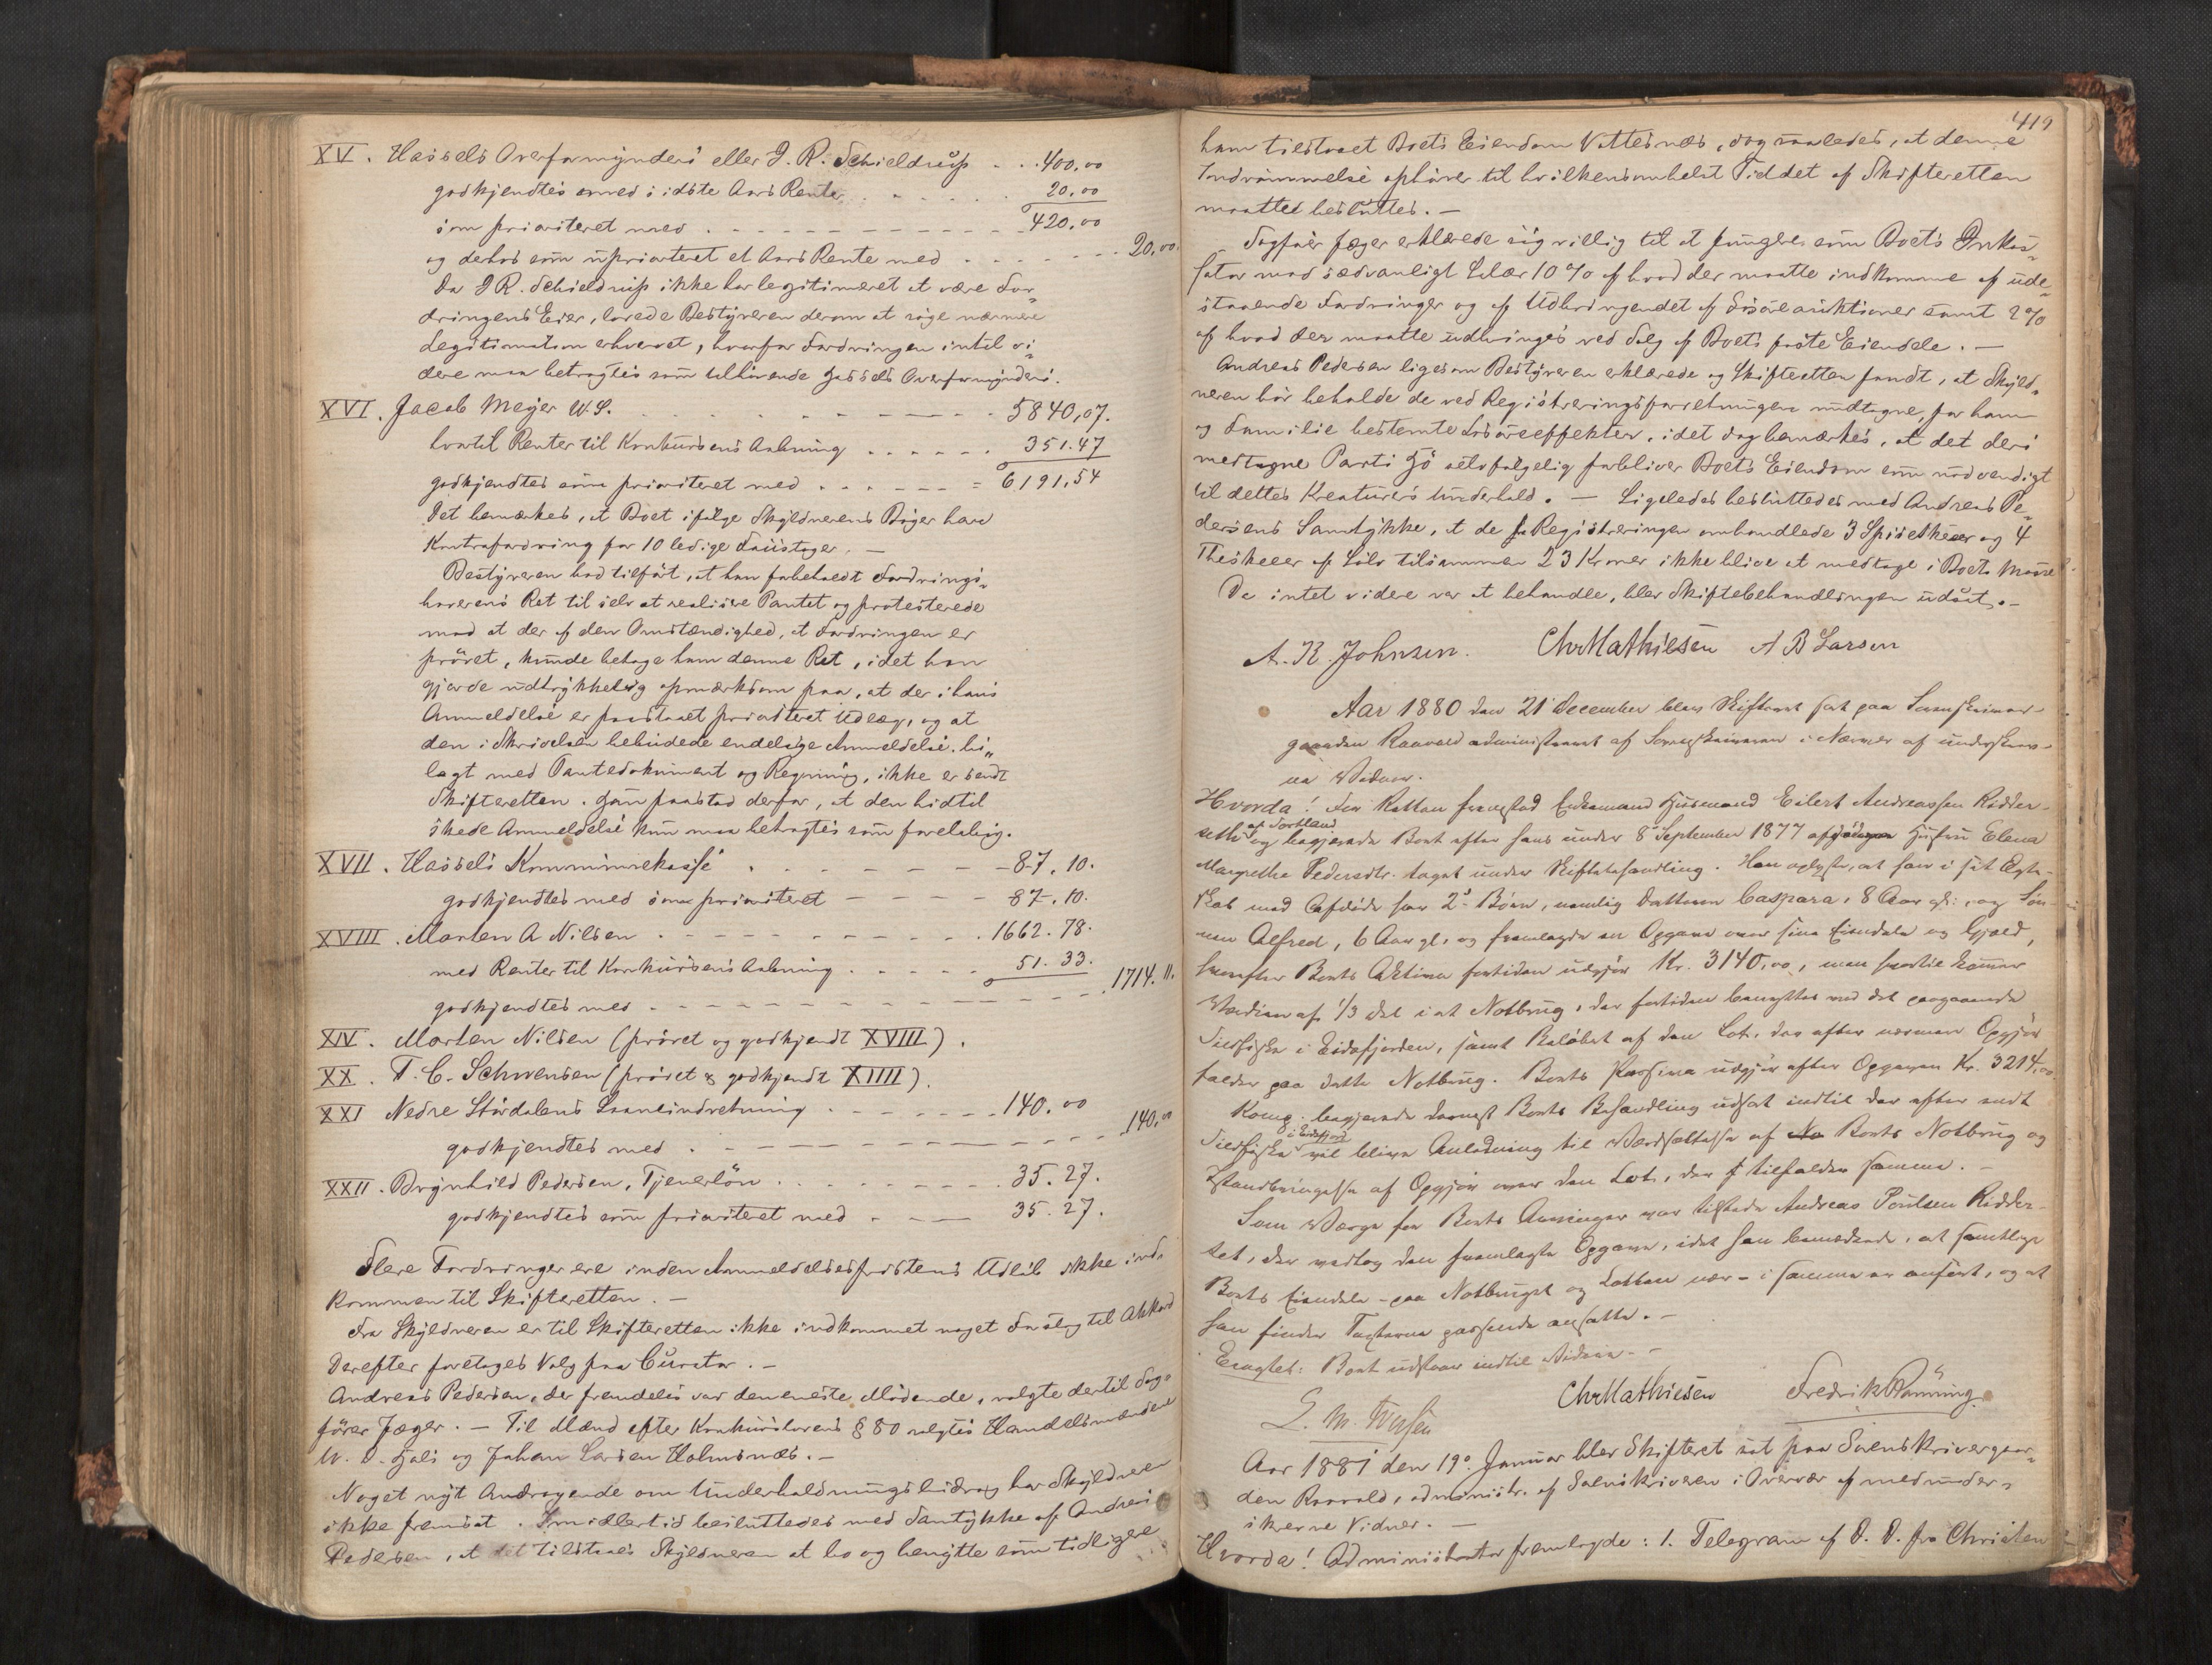 XV. Hassels Overformynderi eller J. R. Schieldrup . . . 400,00
godkjendtes med i idste Aars Rente . . . . . . 20.00
som prioriteret med . . . . . . . . . . 420.00
og derhos som uprioriteret et Aars Rente med . . . . . . . 20,00.
Da J R. Schieldrup ikke har legitimeret at være For-
dringens Eier, lovede Bestyreren derom at söge nærmere
Legitimation erhvervet, hvorfor Fordringen intil vi-
dere maa betragtes som tilhörende Hassels Overformynderi.
XVI. Jacob Meyer W. S. . . . . . . . . 5840,07.
hvortil Renter til Konkursens Aabning . . . . . . 351.47
godkjendtes som prioriteret med . . . . . . = 6191,54
Det bemærkes, at Boet ifölge Skyldnerens Böger have
Kontrafordring for 10 ledige Foustager. —
Bestyreren bad tilfört, at han forbeholdt Fordrings-
haverens Ret til selv at realisere Pantet og protesterede
mod at der af den Omstændighed, at Fordringen er
prövet, kunde betage ham denne Ret, idet han
gjorde udtrykkelig opmærksom paa, at der i hans
Anmeldelse er paastaaet prioriteret Udlæg, og at
den i Skrivelsen bebudede endelige Anmeldelse, bi-
lagt med Pantedokument og Regning, ikke er sendt
Skifteretten. Han paastod derfor, at den hidtil
skede Anmeldelse kun maa betragtes som forelöbig.
XVII. Hassels Kommunekasse . . . . . . . — 87, 10.
godkjendtes med som prioriteret — — — — 87, 10.
XVIII. Morten A Nilsen . . . . . . . . . . 1662. 78.
med Renter til Konkursens Aabning . . . . . 51. 33.
godkjendtes med . . . . . . . . . . . . . 1714. 11.
XIV. Morten Nilsen (prövet og godkjendt XVIII).
XX. T. C. Schwensen (prövet & godkjendt XIIII).
XXI Nedre Stördalens Laaneindretning . . . . . . . 140.00
godkjendtes med . . . . . . . . . . . . . 140,00
XXII. Brynhild Pedersen, Tjenerlön . . . . . . . . . 35. 27.
godkjendtes som prioriteret med . . . — — 35. 27.
Flere Fordringer ere inden Anmeldelsesfristens Udlöb ikke ind-
kommen til Skifteretten. —
Fra Skyldneren er til Skifteretten ikke indkommet noget Forslag til Akkord
Derefter foretoges Valg paa Curator. —
Andreas Pedersen, der fremdeles var den eneste Mödende, valgte dertil Sag-
förer Jæger. — Til Mænd efter Konkurslovens § 80 valgtes Handelsmændene
W. D. Hals og Johan Larsen Holmsnæs. —
Noget nyt Andragende om Underholdningsbidrag har Skyldneren
ikke fremsat. Imidlertid besluttedes med Samtykke af Andreas
Pedersen, at det tilstaaes Skyldneren at bo og benytte som tidligere
419
ham tilstaaet Boets Eiendom Vottesnæs, dog saaledes, at denne
Indrömmelse ophörer til hvilkensomhelst Tid det af Skifteretten
maattet besluttes. —
Sagförer Jæger erklærede sig villig til at fungere som Boets Inkas-
sator mod sædvanligt Salær 10 % af hvad der maatte indkomme af ude-
staaende Fordringer og af Udbringendet af Lösöreauktioner samt 2 %
af hvad der maatte udbringes ved Salg af Boets faste Eiendele. —
Andreas Pedersen ligesom Bestyreren erklærede og Skifteretten fandt, at Skyld-
neren bör beholde de ved Registreringsforretningen undtagne, for ham
og Familie bestemte Lösöreeffekter, idet dog bemærkes, at det deri
medtagne Parti Hö selvfölgelig forbliver Boets Eiendom som nödvendigt
til dettes Kreaturers Underhold. — Ligeledes besluttedes med Andreas Pe-
dersens Samtykke, at de i Registreringen omhandlede 3 Spiseskeer og 4
Theskeer af Sölv tilsammen 23 Kroner ikke blive at medtage i Boets Masse
Da intet videre var at behandle, blev Skiftebehandlingen udsat. —
A. K. Johnsen. Chr Mathiesen A B Larsen
Aar 1880 den 21 December blev Skifteret sat paa Sorenskriver-
gaarden Raavold administreret af Sorenskriveren i Nærvær af underskrev-
ne Vidner.
Hvorda! For Retten fremstod Enkemand Husmand Eilert Andreassen Ridder-
seth af Sortland og begjerede Boet efter hans under 8 September 1877 afdöde Hustru Elena
Margrethe Pedersdtr. taget under Skiftebehandling. Han oplyste, at han i sit Ægte-
skab med Afdöde har 2de Börn, nemlig Datteren Caspara, 8 Aar gl:, og Sön-
nen Alfred, 6 Aar gl. og fremlagde en Opgave over sine Eiendele og Gjæld,
hvorefter Boets Aktiva fortiden udgjör Kr. 3140,00, men hvortil kommer
Værdien af 1/3 Del i et Notbrug, der fortiden benyttes ved det paagaaende
Sildfiske i Eidsfjorden, samt Belöbet af den Lot, der efter nærmere Opgjör
falder paa dette Notbrug. Boets Passiva udgjör efter Opgaven Kr. 3214,00
Komp. begjerede dernæst Boets Behandling udsat indtil der efter endt
Sildfiske i Eidsfjord vil blive Anledning til Værdsættelse af Boets Notbrug og
Istandbringelse af Opgjör over den Lot, der tilfalder samme. —
Som Værge for Boets Arvinger var tilstede Andreas Poulsen Ridder-
set, der vedtog den fremlagte Opgave, idet han bemærkede, at samtlige
Boets Eiendele - paa Notbruget og Lotten nær - i samme er anfört, og at
han finder Taxterne passende ansatte. —
Eragtet: Boet udstaar indtil videre. —
L. M. Iversen Chr Mathiesen Fredrik Rönning
Aar 1881 den 19de Januar blev Skifteret sat paa Sorenskrivergaar-
den Raavold, administr. af Sorenskriveren i Overvær af medunder-
skrevne Vidner. —
Hvorda! Administrator fremlagde: 1. Telegram af D. D. fra Christen